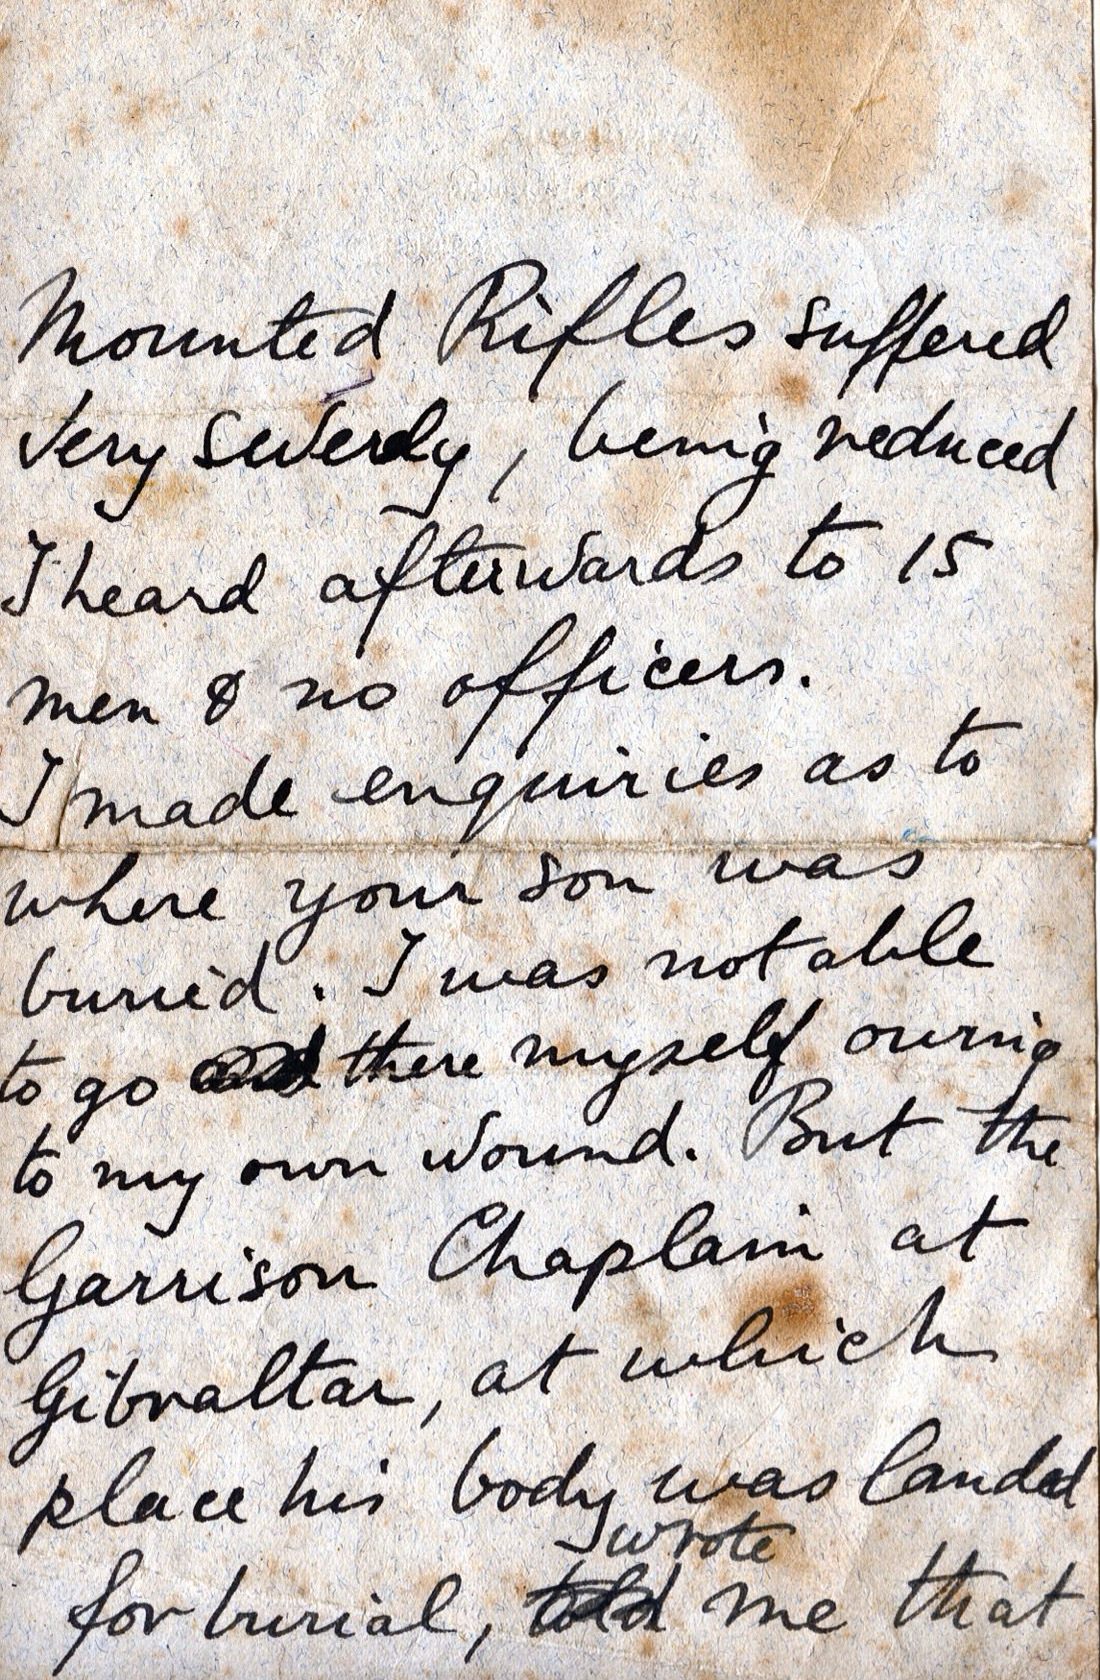 Mounted Rifles suffered
very severely, being reduced
I heard afterwards to 15
men & no officers.
I made enquiries as to
where your son was
buried. I was not able
to go there myself owing
to my own wound. But the
Garrison Chaplain at
Gibraltar, at which
place his body was landed
wrote
for burial, told me that